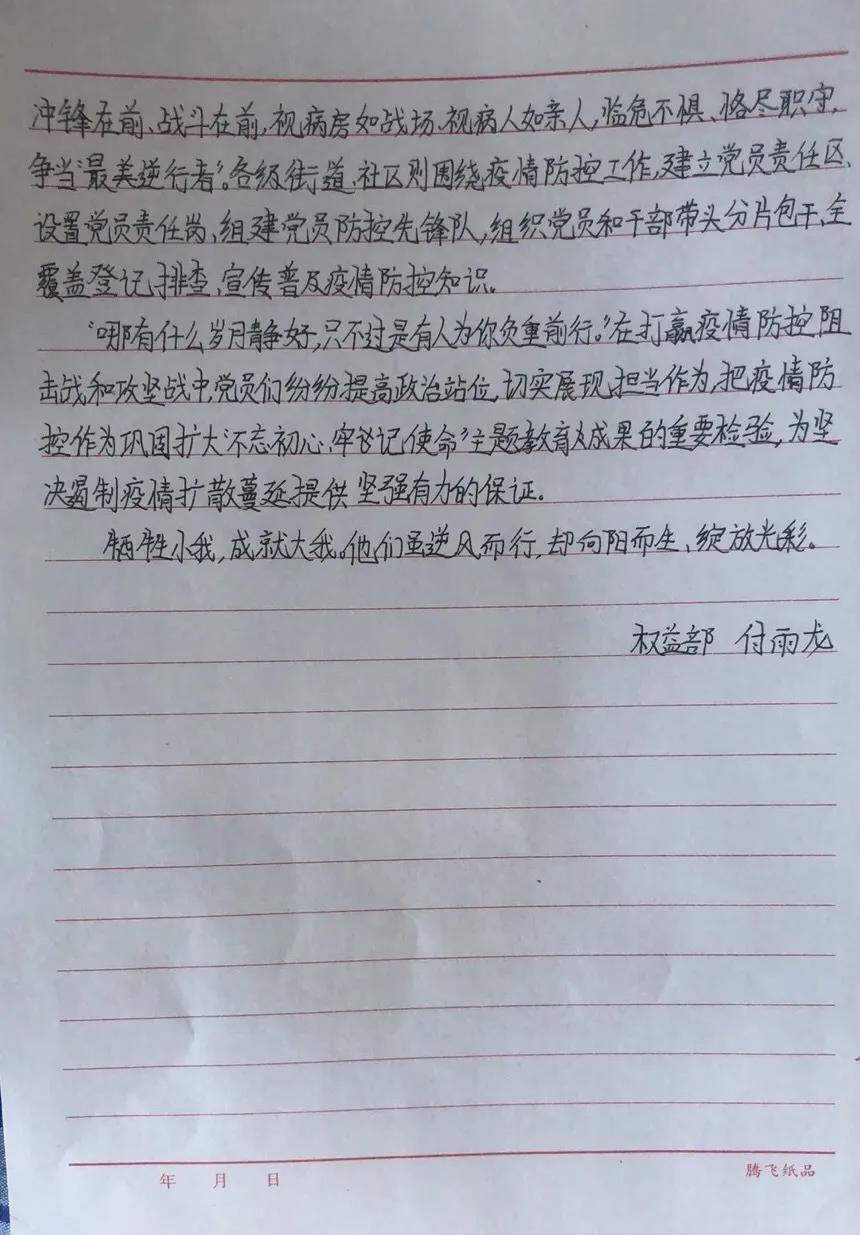 冲锋在前、战斗在前,视病房如战场、视病人如亲人,临危不惧、恪尽职守,
争当“最美逆行者”。各级街道、社区则围绕疫情防控工作,建立党员责任区、
设置党员责任岗、组建党员防控先锋队,组织党员和干部带头分片包干、全
覆盖登记排查、宣传普及疫情防控知识。
“哪有什么岁月静好,只不过是有人为你负重前行。”在打赢疫情防控阻
击战和攻坚战中,党员们纷纷提高政治站位,切实展现担当作为,把疫情防
控作为巩固扩大“不忘初心、牢记使命”主题教育成果的重要检验,为坚
决遏制疫情扩散蔓延提供坚强有力的保证。
牺牲小我,成就大我。他们虽逆风而行,却向阳而生、绽放光彩。
权益部 付雨龙
年 月 日
腾飞纸品